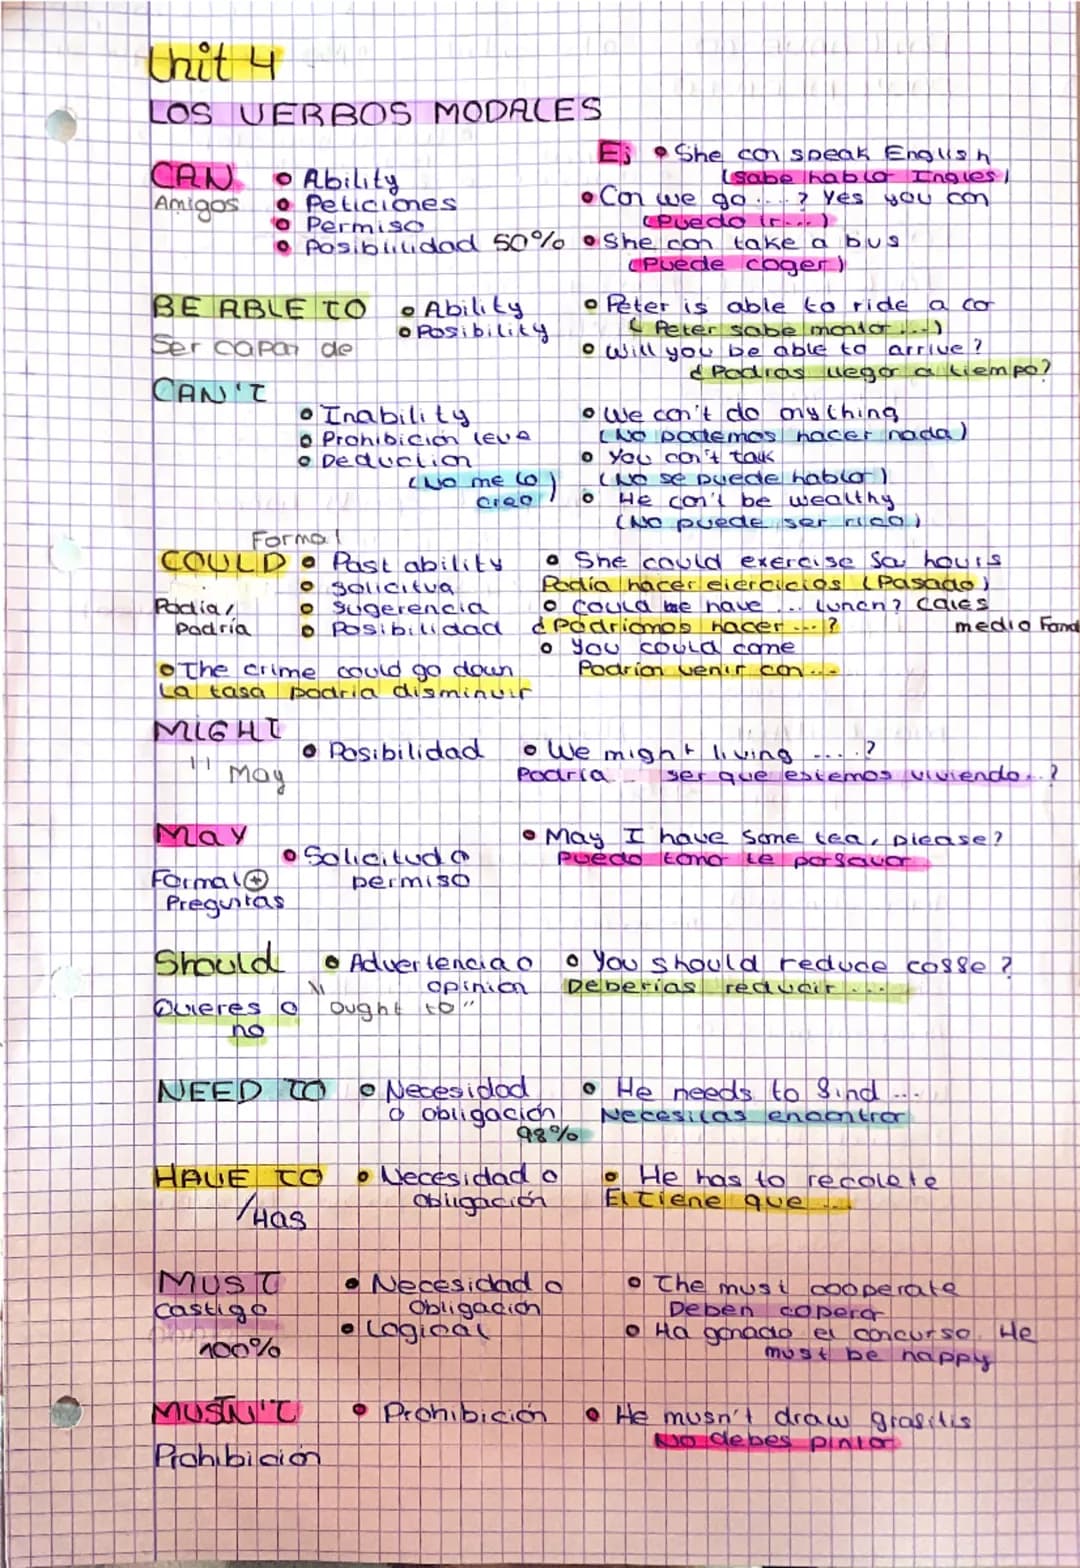 Unit 4
LOS VERBOS MODALES
CAN
Amigos
• Ability
• Peticiones
• Permiso
• Posibilidad 50%
Ej • She can speak English
(sabe hablar Inglés)
• Can we go ...? Yes you can
(Puedo ir...)
• She can take a bus
(Puede coger)
BE ABLE TO
Ser capaz de
• Ability
• Posibility
• Peter is able to ride a ca
(Peter sabe montar ...)
• Will you be able to arrive?
¿Podrás llegar a tiempo?
CAN'T
• Inability
• Prohibición leve
• Deduction
(No me lo
creo)
• We can't do anything
(No podemos hacer nada)
• You can't talk
(No se puede hablar)
• He can't be wealthy
(No puede ser rico)
Formal
COULD
Podía/
Podría
• Past ability
• Solicitva
• Sugerencia
• Posibilidad
• She could exercise for hours
Podía hacer ejercicios (Pasado)
• Could we have ... lunch?
¿Podríamos hacer ...?
medio Fond
• You could come
Podrían venir con...
• The crime could go down
La tasa podría disminuir
MIGHT
" May
• Posibilidad
• We might living ....?
Podría ser que estemos viviendo...?
May
Formal +
Preguntas
• Solicitud o
permiso
• May I have some tea, please?
Puedo toma te porfavor
Should
" ought to"
Quieres o
no
• Advertencia o
opinión
• You should reduce cosse?
Deberías reducir ...
NEED TO
• Necesidad
o obligación
98%
• He needs to find ...
Necesitas encontrar
HAVE TO
/Has
• Necesidad o
obligación
• He has to recolete
El tiene que ...
MUST
Castigo
100%
• Necesidad o
Obligación
• Logical
• The must cooperate
Deben copera
• Ha ganado el concurso. He
must be happy
MUSTN'T
Prohibición
• Prohibición
• He musn't draw grafitis
No debes pintar